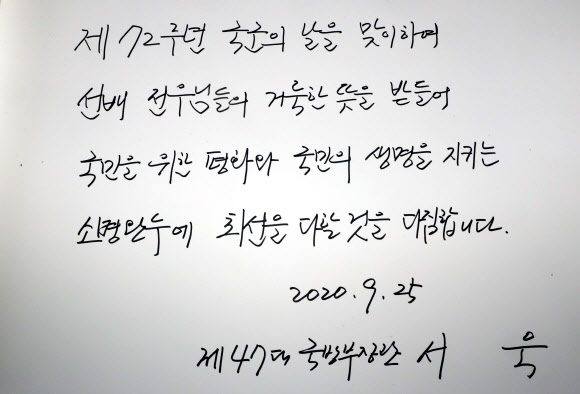 제 72주년 국군의 날을 맞이하여
선배 전우님들의 거룩한 뜻을 받들어
국민을 위한 평화와 국민의 생명을 지키는
소명완수에 최선을 다할 것을 다짐합니다.
2020. 9. 25
제47대 국방부장관 서 욱